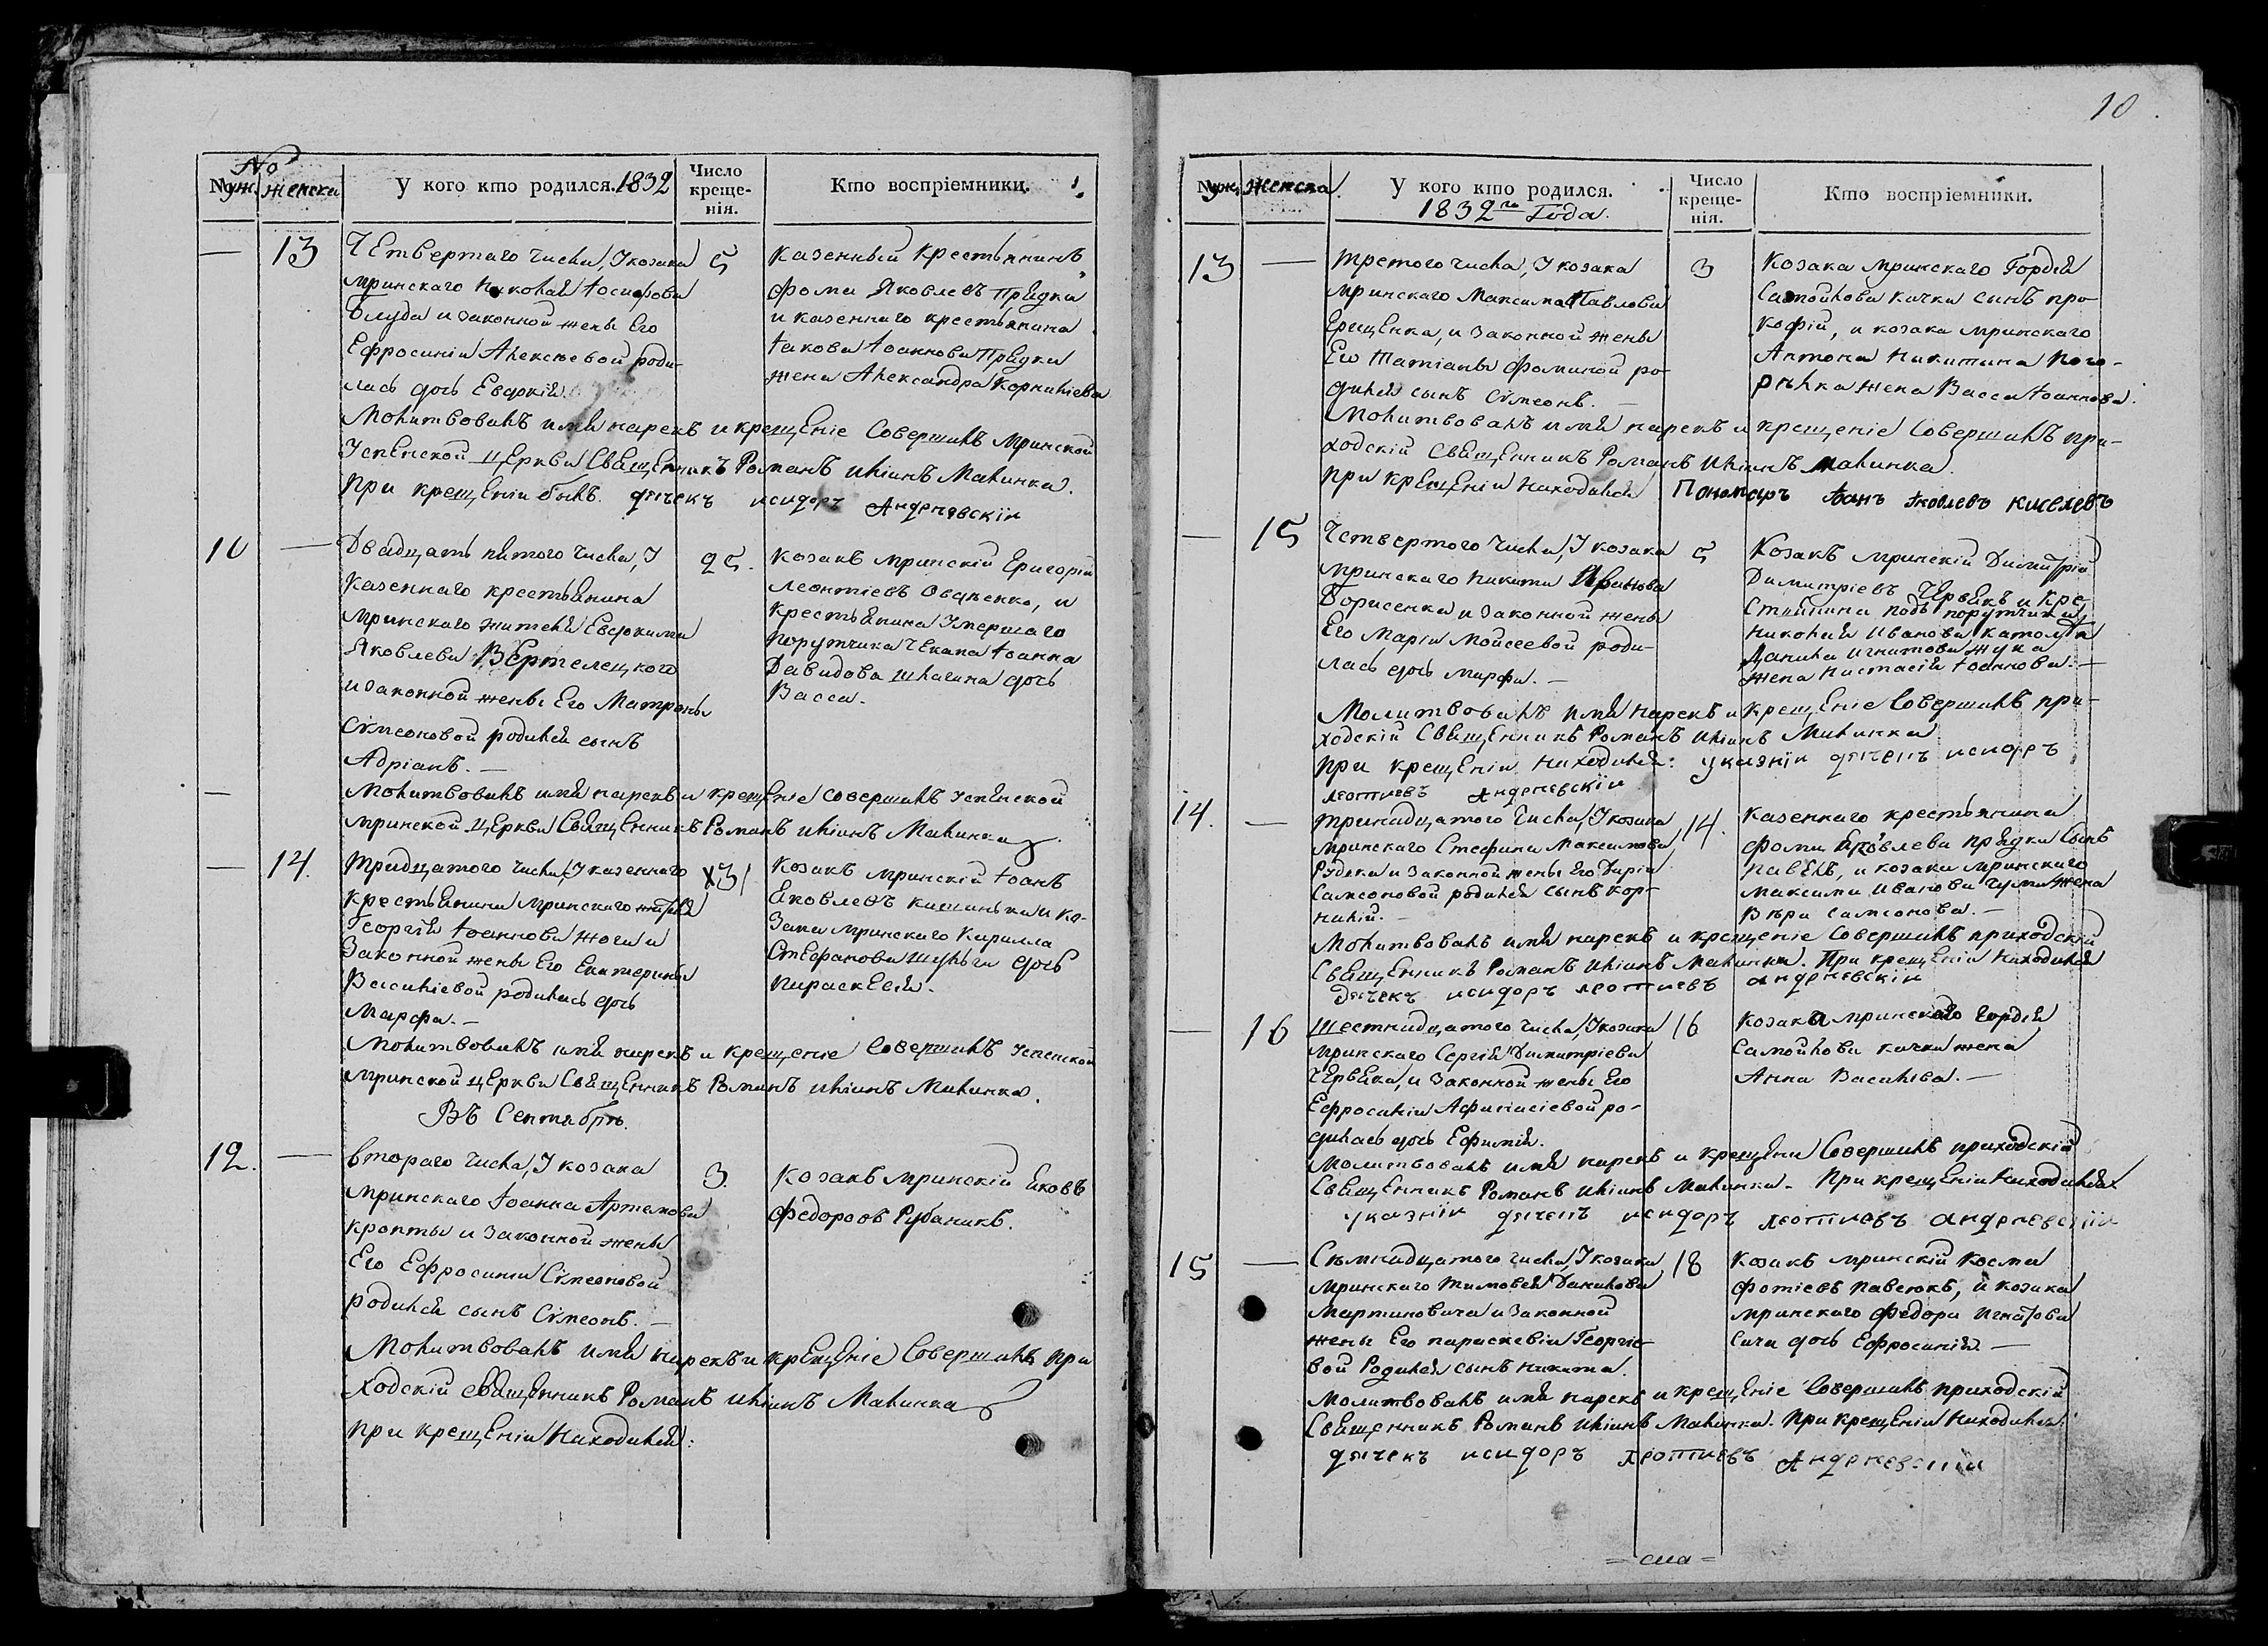 №
Муж. женска У кого кто родился. 1832 Число креще-нія. Кто воспріемники.
— 13 Четвертаго числа, У козака 5
мринскаго Николая Іосифова
Блуда и законной жены Его
Ефросиніи Алексѣевой роди-
лась дочь Евдокія.
Казенный крестьянинъ
Фома Яковлевъ Прядка
и казеннаго крестьянина
Іакова Іоаннова Прядки
жена Александра Корниліева
Молитвовалъ имя нарекъ и крещеніе Совершилъ Мринской
Успенской церкви Священникъ Романъ Иліинъ Малинка.
При крещеніи былъ. дячекъ исидоръ Андреевскій
10 — Двадцать пятого числа, У 25.
Казеннаго крестьянина
мринскаго жителя Евдокима
Яковлева Вертелецкого
и законной жены Его Матроны
Сѵмеоновой родился сынъ
Адріанъ. —
Козакъ мринскій Григорій
Леонтіевъ Овдѣенко, и
крестьянина Умершаго
порутчика Чекана Іоанна
Давидова дочь
Васса.
— Молитвовалъ имя нарекъ и крещеніе совершилъ Успенской
мринской Церкви Священникъ Романъ Иліинъ Малинка
— 14. Тридцатого числа, У казеннаго 31
крестьянина мринскаго жителя
Георгія Іоаннова Жоги и
Законной жены Его Екатерины
Василіевой родилась дочь
Марфа. —
Козакъ мринскій Іоанъ
Яковлевъ и ко-
зака мринскаго Кирилла
Стефанова Шульги дочь
Параскевія.
Молитвовалъ имя нарекъ и крещеніе Совершилъ Успенской
мринской церкви Священникъ Романъ Иліинъ Малинка.
Въ Сентябрѣ.
12. — Втораго числа, У козака 3.
мринскаго Іоанна Артемова
Кропты и законной жены
Его Ефросиніи Сѵмеоновой
родился сынъ Сѵмеонъ. —
Козакъ мринскій Яковъ
Федоровъ Рубаникъ.
Молитвовалъ имя нарекъ и крещеніе Совершилъ при
ходскій священникъ Романъ Иліинъ Малинка
при крещеніи Находился:
10
Муж. Женска. У кого кто родился. 1832го Года. Число креще-нія. Кто воспріемники.
13 — Третого числа, У козака 3
мринскаго Максима Павлова
Грищенка, и законной жены
Его Татіаны Фоминой ро-
дился сынъ Сѵмеонъ. —
Козака мринскаго Гордѣя
Самойлова Качки сынъ про-
кофій, и козака мринскаго
Антона Никитина Пого-
рѣлка жена Васса Іоаннова.
Молитвовалъ имя нарекъ и крещеніе Совершилъ при-
ходскій Священникъ Романъ Иліинъ малинка.
При крещеніи Находился Понамаръ Іоанъ Яковлевъ Киселевъ
— 15 Четвертого числа, У козака 5
мринскаго Никиты
Борисенка и законной жены
Его Маріи Мойсеевой роди-
лась дочь Марфа. —
Козакъ мринскій Димитрій
Димитріевъ Червякъ и кре-
порутчика
Николая Иванова
Данила Игнатова Жука
жена Настасія Іоаннова. —
Молитвовалъ имя нарекъ и крещеніе Совершилъ при-
ходскій Священникъ Романъ Иліинъ Малинка
при крещеніи Находился: указній дячекъ исидоръ
леонтиевъ Андреевскій
14. — Тринадцатого числа, У козака 14.
мринскаго Стефана Максимова
Рудька и законной жены Его Даріи
Самсоновой родился сынъ кор-
нилій. —
Казеннаго крестьянина
Фомы Яковлева прядки сынъ
павелъ, и козака мринскаго
Максима Иванова жена
Вѣра самсонова. —
Молитвовалъ имя нарекъ и крещеніе Совершилъ приходскій
Священникъ Романъ Иліинъ Малинка. При крещеніи Находился
дячекъ исидоръ леонтиевъ андреевскій
— 16 Шестнадцатого числа, У козака 16
мринскаго Сергія Димитріева
Червяка, и Законной жены Его
Ефросиніи Афанасіевой ро-
дилась дочь Ефимія.
Козака мринскаго Гордѣя
Самойлова качки жена
Анна Василіева. —
Молитвовалъ имя нарекъ и крещени Совершилъ приходскій
Священникъ Романъ Иліинъ Малинка - При крещеніи Находился
указній дячекъ исидоръ леонтиевъ андреевскій
15 — Семнадцатого числа, У козака 18
мринскаго Тимовея Данилова
Мартиновича и Законной
жены Его параскевіи Георгіе-
вой Родился сынъ Никита.
Козакъ мринскій Косма
Фотіевъ павсюкъ, и козака
мринскаго Федора Игнатова
Сича дочь Ефросинія. —
Молитвовалъ имя нарекъ и крещеніе Совершилъ приходскій
Священникъ Романъ Иліинъ Малинка. При крещеніи Находился:
дячекъ исидоръ леонтиевъ Андреевскій